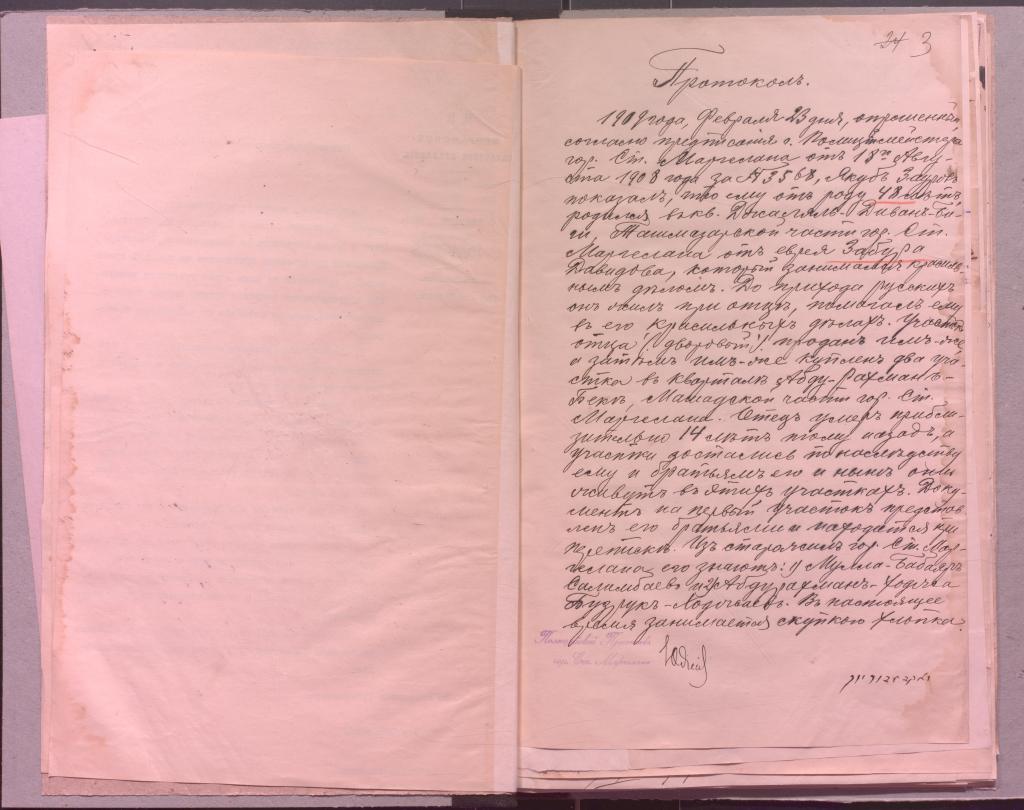 34 3
Протоколъ.
1909 года, Февраля 23 дня, опрошенный
согласно предписанія г. Полиціймейстера
гор. Ст. Маргелана отъ 18го Авгу-
ста 1908 года за № 3568, Якубъ Забуровъ
показалъ, что ему отъ роду 48 лѣтъ,
родился въ кв. Диванъ-Би-
ги, Ташмазарской части гор. Ст.
Маргелана отъ еврея Забура
Давидова, который занимался красиль-
нымъ дѣломъ. До прихода русскихъ
онъ жилъ при отцѣ, помогалъ ему
въ его красильныхъ дѣлахъ. Участокъ
отца (дворовый) проданъ имъ-же
а затѣмъ имъ-же купленъ два уча-
стка въ кварталѣ Абду-Рахманъ-
Бекъ, Машадской части гор. Ст.
Маргелана. Отецъ умеръ прибли-
зительно 14 лѣтъ тому назадъ, а
участки достались по наслѣдству
ему и братьямъ его и нынѣ они
живутъ въ этихъ участкахъ. Доку-
ментъ на первый участокъ представ
ленъ его братьями и находится при
перепискѣ. Изъ старожилъ гор. Ст. Мар-
гелана его знаютъ: 1) Мулла-Бабаджъ
Салимбаевъ и 2) Абдурахманъ-Ходжа
Будрукъ-Ходжаевъ. Въ настоящее
время занимается скупкою хлопка.
гор. Ст. Маргелана